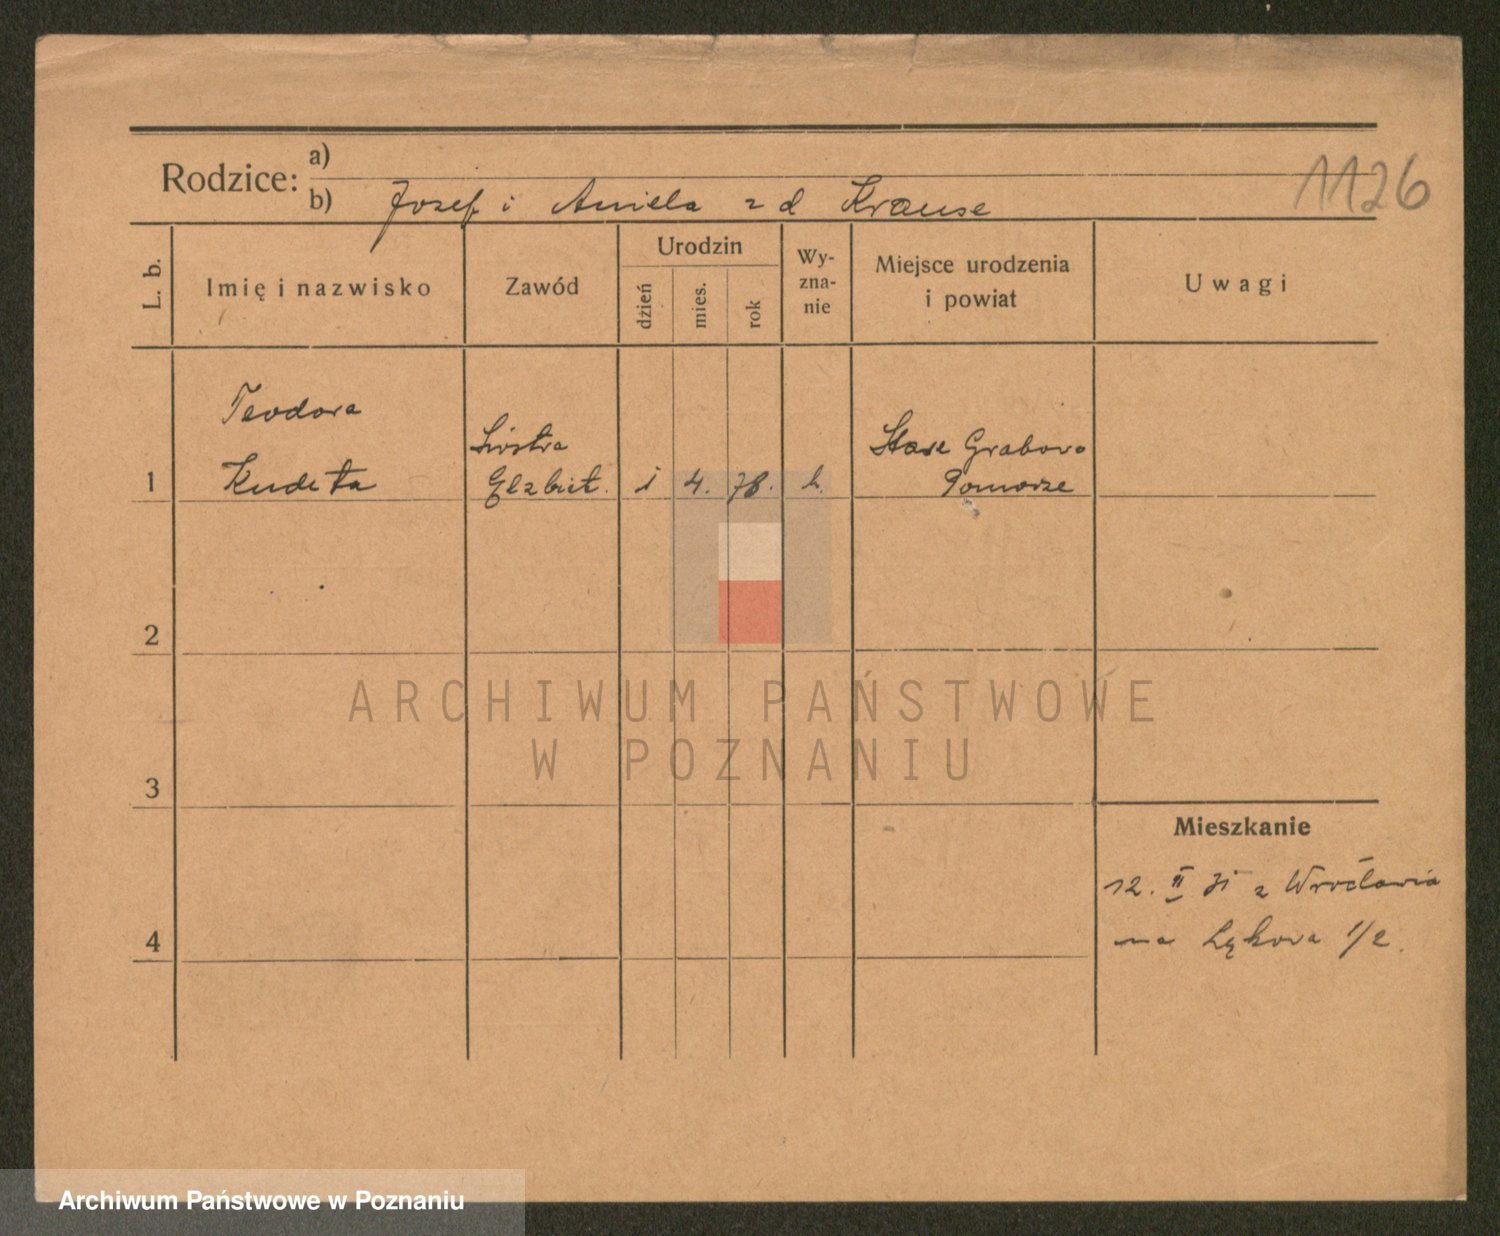 Rodzice:
a)
b) Jozef i Aniela z d Krause
1126
L. b.
Imię i nazwisko
Zawód
Urodzin
dzień
mies.
rok
Wy-
zna-
nie
Miejsce urodzenia
i powiat
Uwagi
Teodora
Kudeta
Siostra
Elzbiet.
1
1 4. 78. k.
Stare Grabovo
Pomorze
2
3
4
ARCHIWUM PAŃSTWOWE
W POZNANIU
Mieszkanie
12. II 31 z Wrocławia
na Łąkova 1/2.
Archiwum Państwowe w Poznaniu